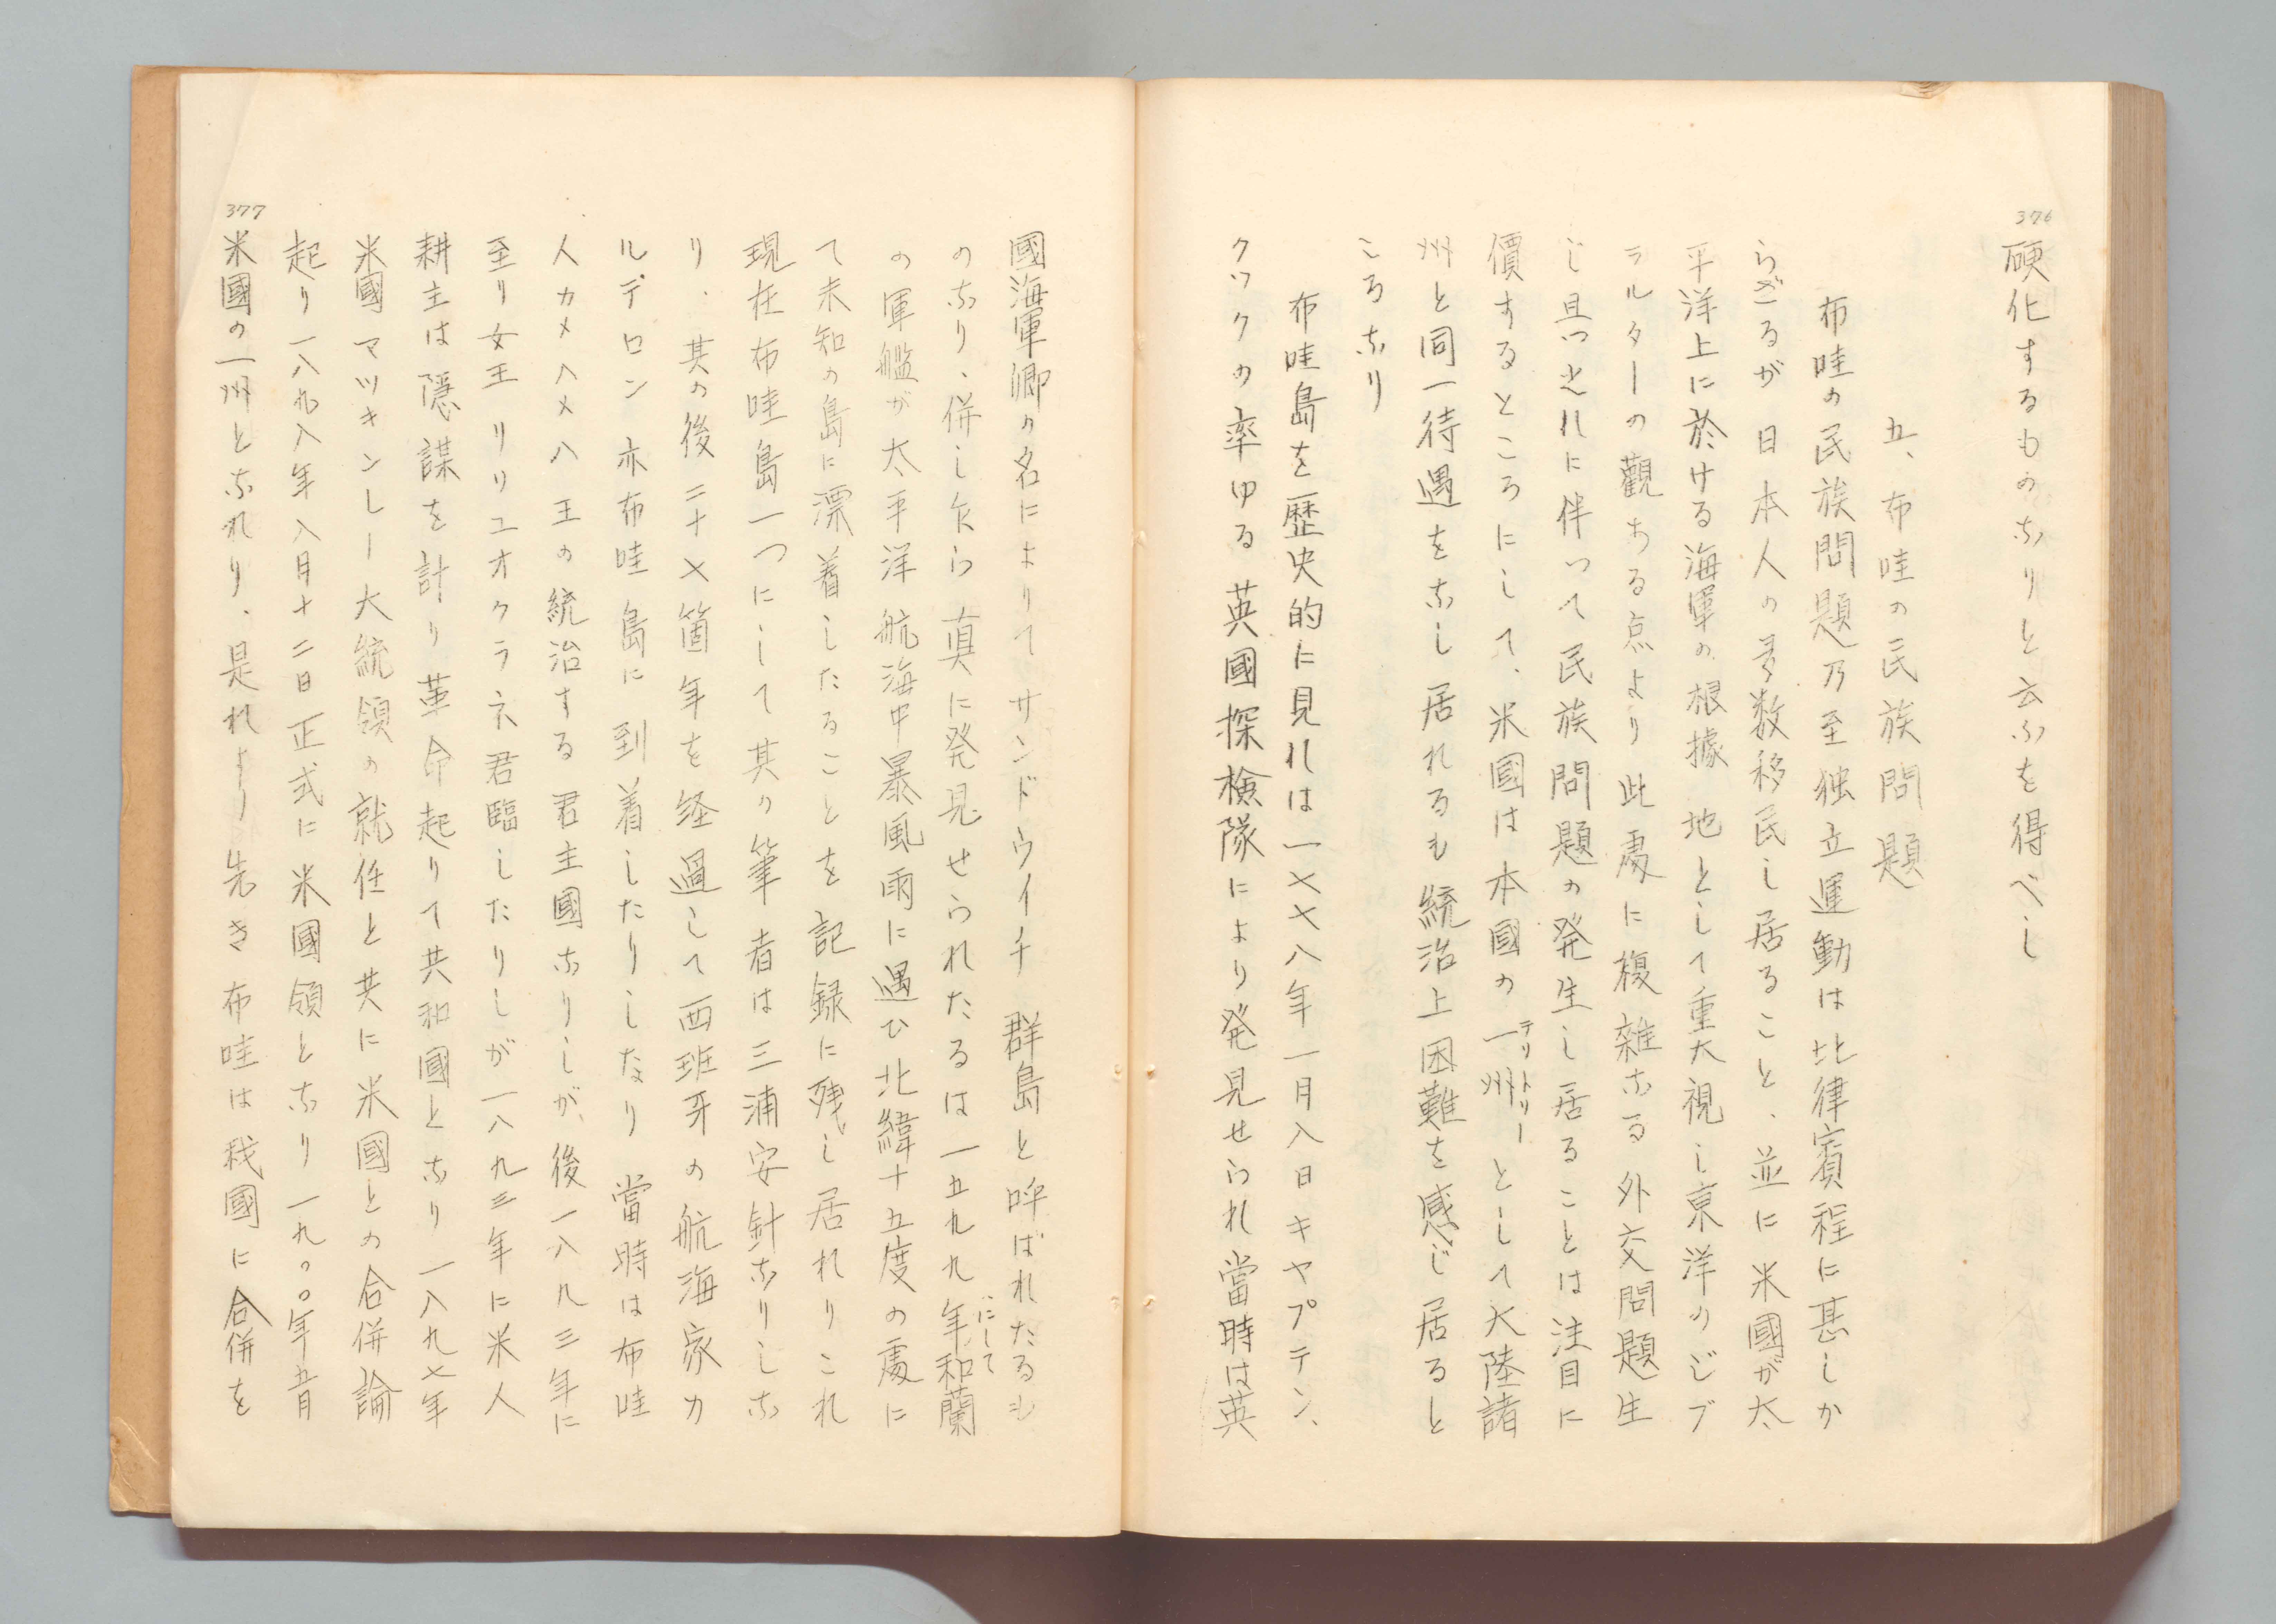 376
硬化するものなりと云ふを得べし
五、布哇の民族問題
布哇の民族問題乃至独立運動は比律賓程に甚しか
らざるが日本人の多数移民し居ること、並に米國が太
平洋上に於ける海軍の根據地として重大視し東洋のジブ
ラルターの觀ある点より此處に複雑なる外交問題生
じ且つ之れに伴つて民族問題の発生し居ることは注目に
價するところにして、米國は本國の一州テリトリーとして大陸諸
州と同一待遇をなし居れるも統治上困難を感じ居ると
ころなり
布哇島を歴史的に見れは一七七八年一月八日キヤプテン、
クツクの率ゆる英國探検隊により発見せられ當時は英
國海軍卿の名によりてサンドウイチ群島と呼ばれたるも
のなり、併し乍ら真に発見せられたるは一五九九年にして和蘭
の軍艦が太平洋航海中暴風雨に遇ひ北緯十五度の處に
て未知の島に漂着したることを記録に残し居れりこれ
現在布哇島一つにして其の筆者は三浦安針なりしな
り、其の後二十七箇年を経過して西班牙の航海家カ
ルデロン亦布哇島に到着したりしなり當時は布哇
人カメハメハ王の統治する君主國なりしが、後一八九三年に
至り女王リリユオクラネ君臨したりしが一八九三年に米人
耕主は隠謀を計り革命起りて共和國となり一八九七年
米國マツキンレー大統領の就任と共に米國との合併論
起り一八九八年八月十二日正式に米國領となり一九〇〇年五月
377
米國の一州となれり、是れより先き布哇は我國に合併を